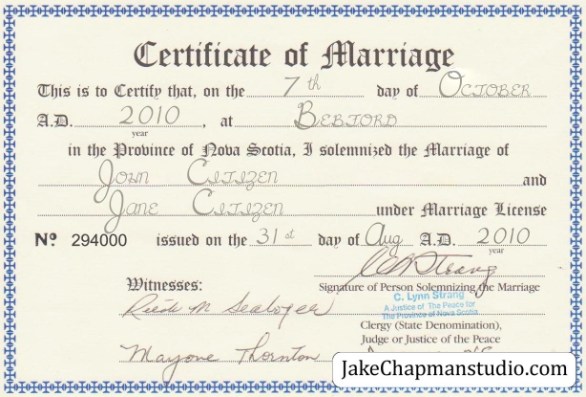 Certificate of Marriage
This is to Certify that, on the 7th day of October
A.D. 2010, at Bedford
year
in the Province of Nova Scotia, I solemnized the Marriage of
John Citizen and
Jane Citizen under Marriage License
No. 294000 issued on the 31st day of Aug A.D. 2010
year
C Strang
Witnesses: Signature of Person Solemnizing the Marriage
C. Lynn Strang
A Justice of The Peace for
The Province of Nova Scotia
Clergy (State Denomination),
Judge or Justice of the Peace
M
Thornton
JakeChapmanstudio.com